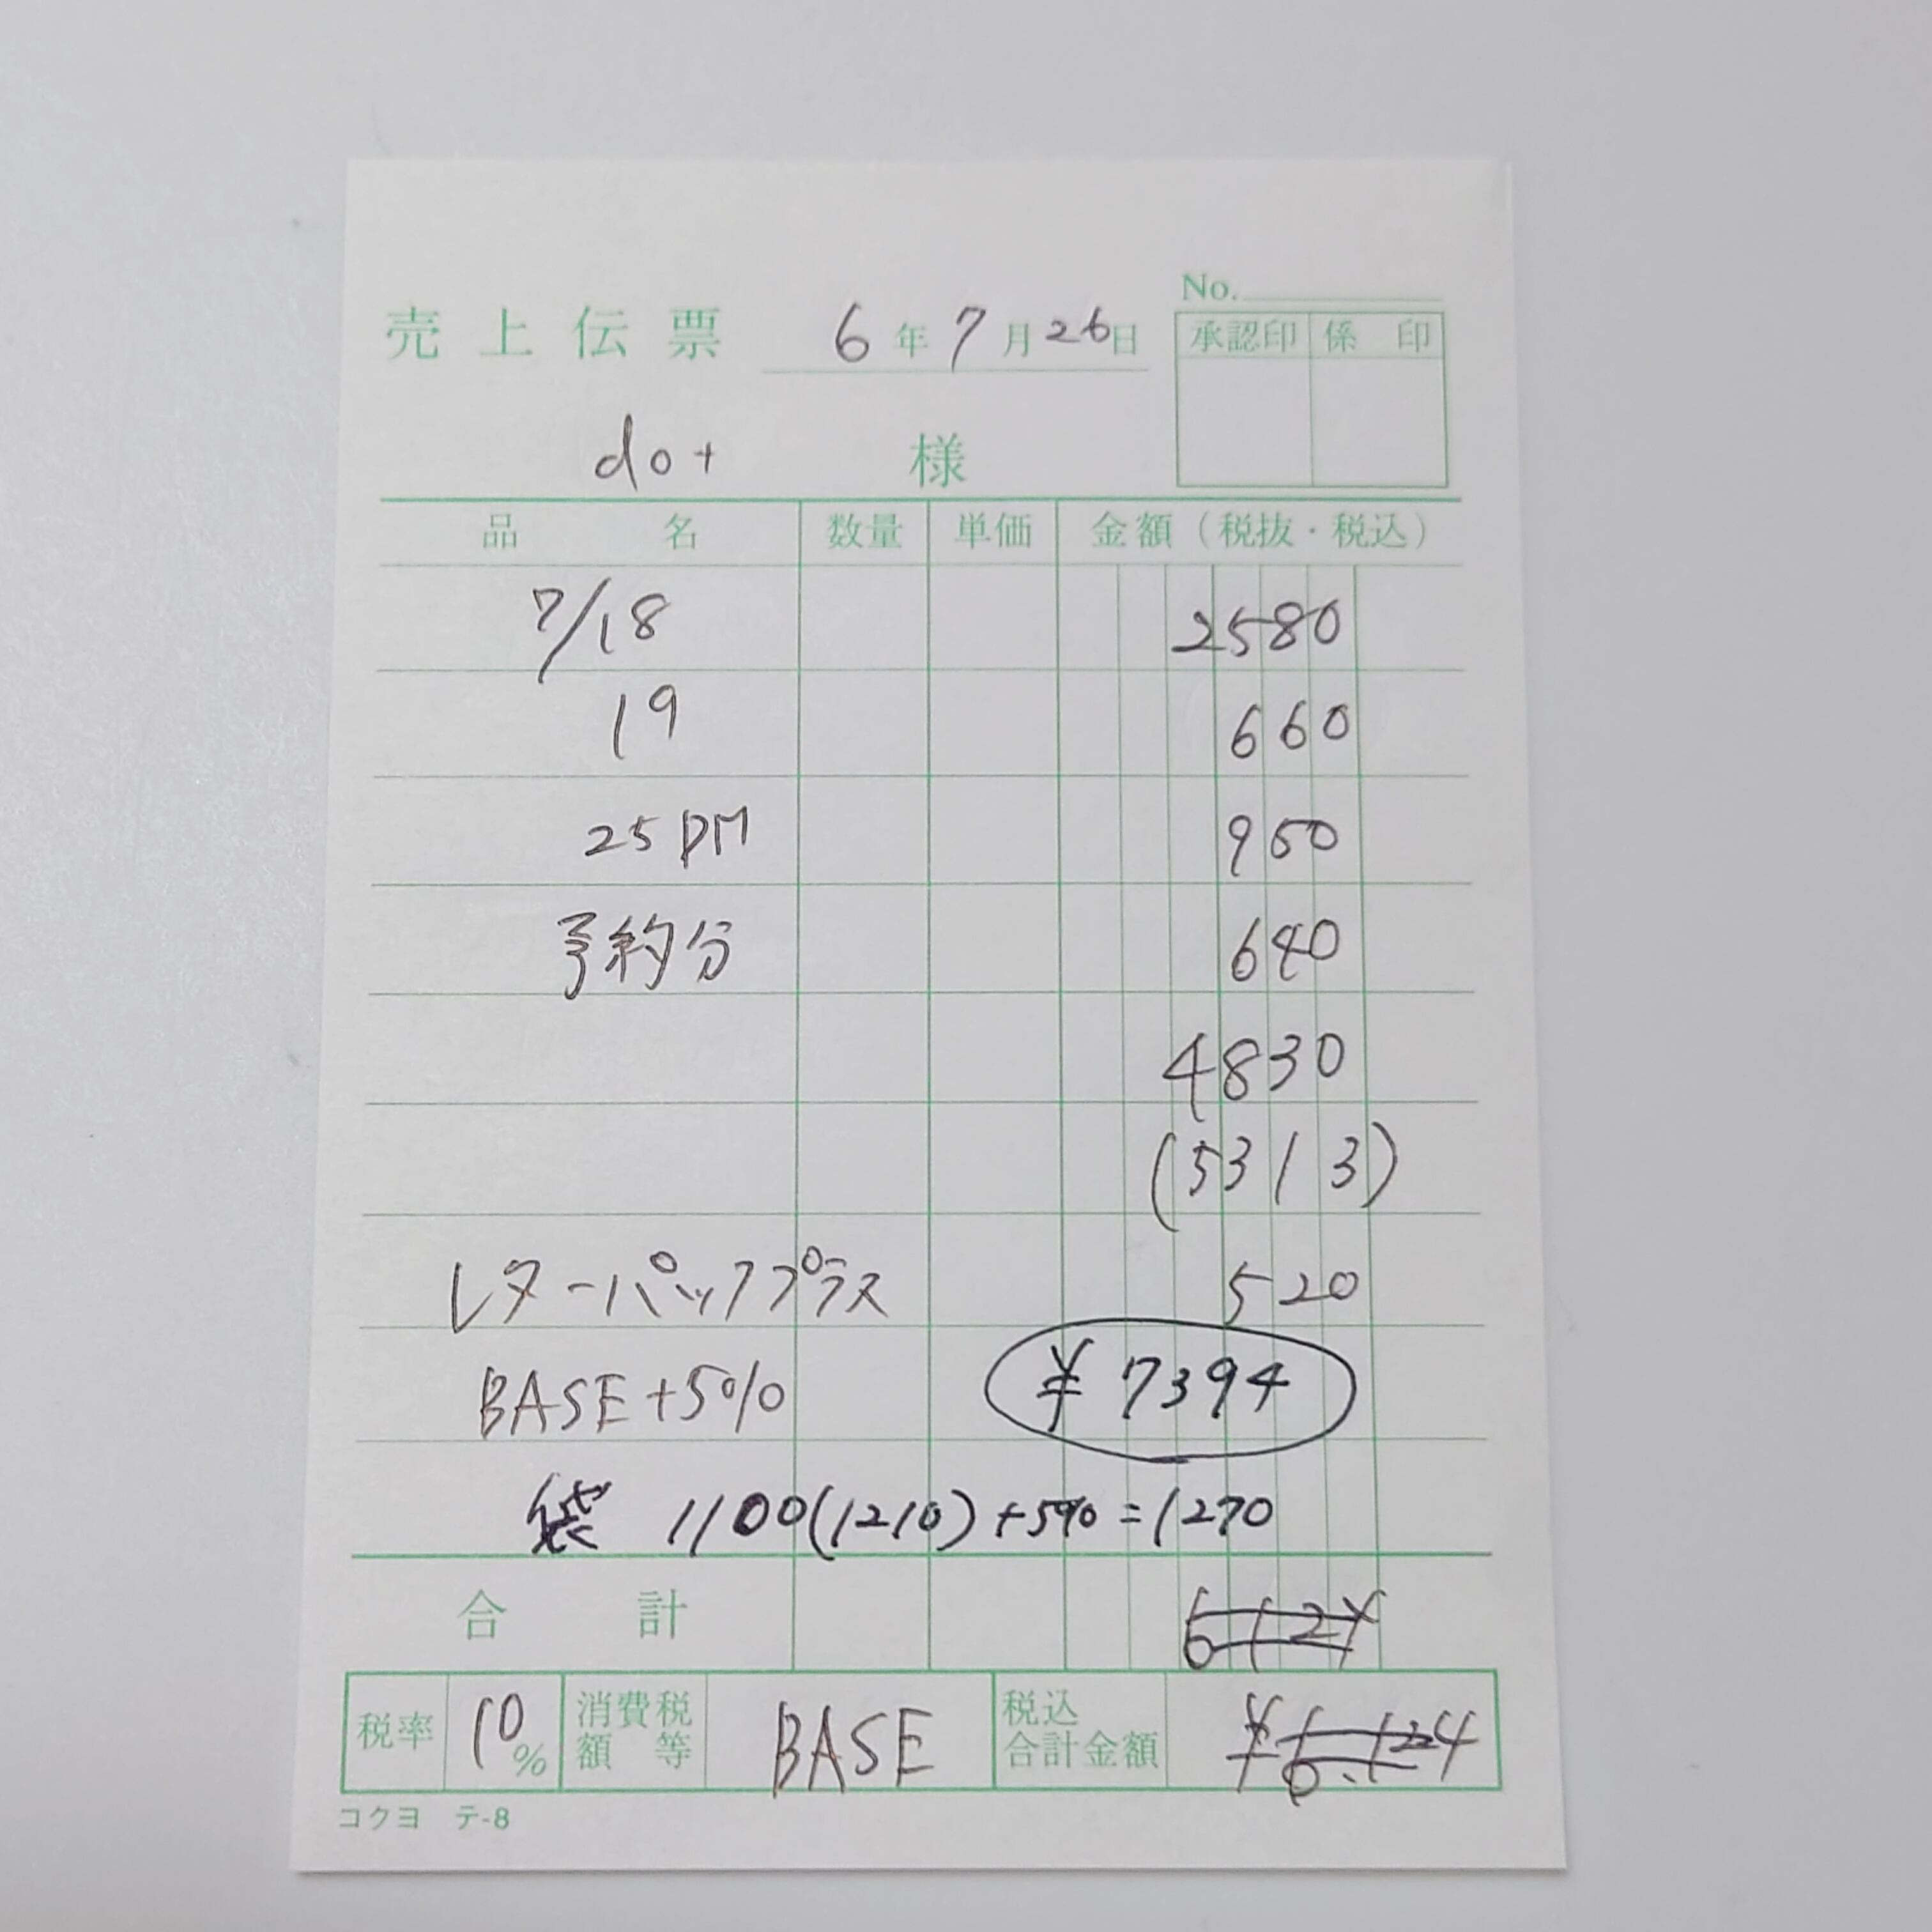 No.
売上伝票 6年7月26日
承認印 係印
dot 様
品名 数量 単価 金額(税抜・税込)
7/18 2580
19 660
25PM 950
予約分 640
4830
(5313)
レターパックプラス 520
BASE+5% ¥7394
袋 1100(1210)+5%=1270
合計 6124
税率 10% 消費税額等 BASE 税込合計金額 ¥6.124
コクヨ テ-8